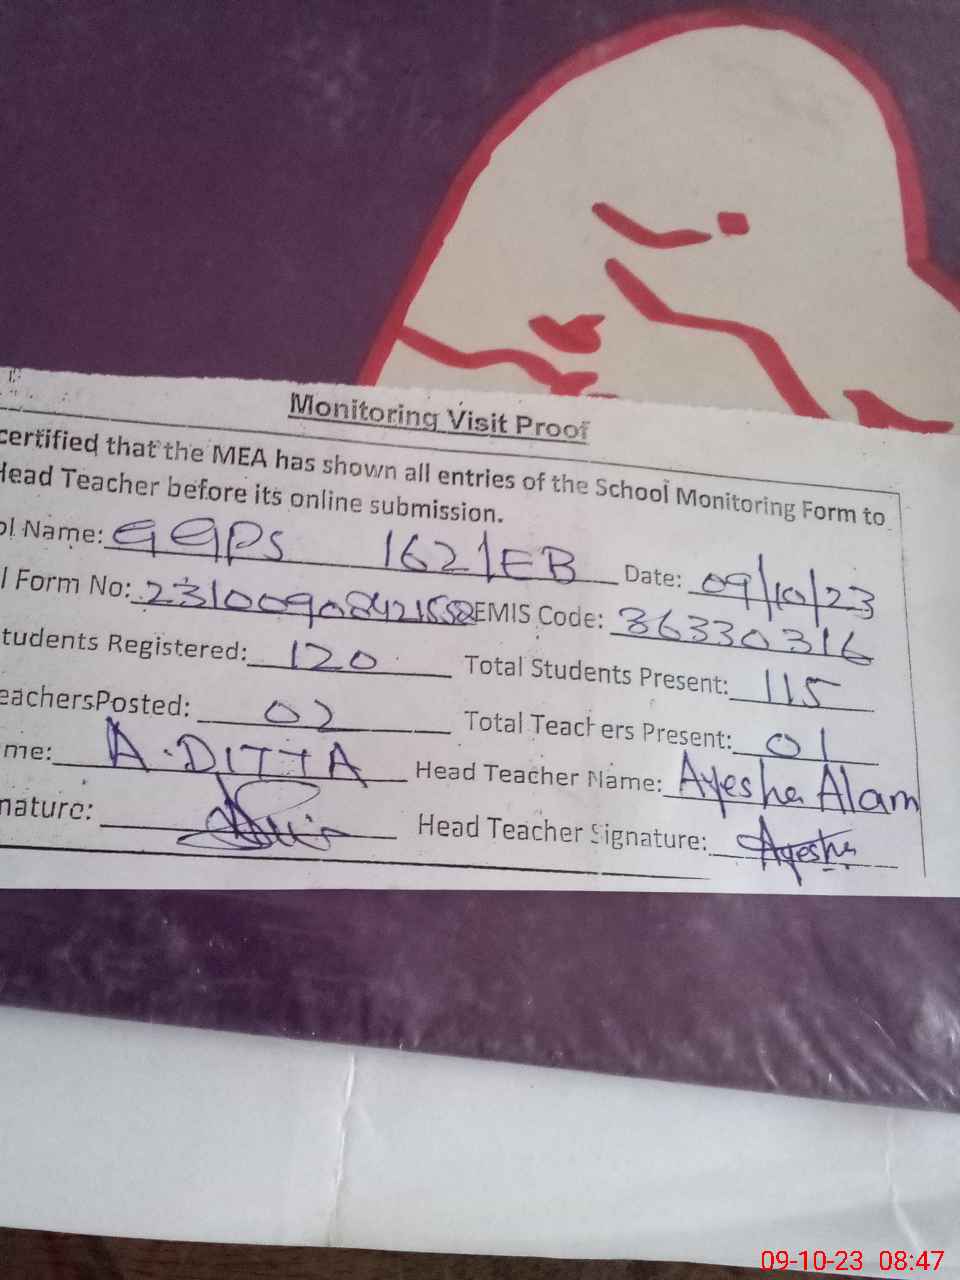 Monitoring Visit Proof
certified that the MEA has shown all entries of the School Monitoring Form to
Head Teacher before its online submission.
ol Name: GGPS 162/EB Date: 09/10/23
l Form No: EMIS Code: 36330316
tudents Registered: 120 Total Students Present: 115
eachersPosted: 02 Total Teachers Present: 01
me: A.DITTA Head Teacher Name: Ayesha Alam
nature: Head Teacher Signature: Ayesha
09-10-23 08:47